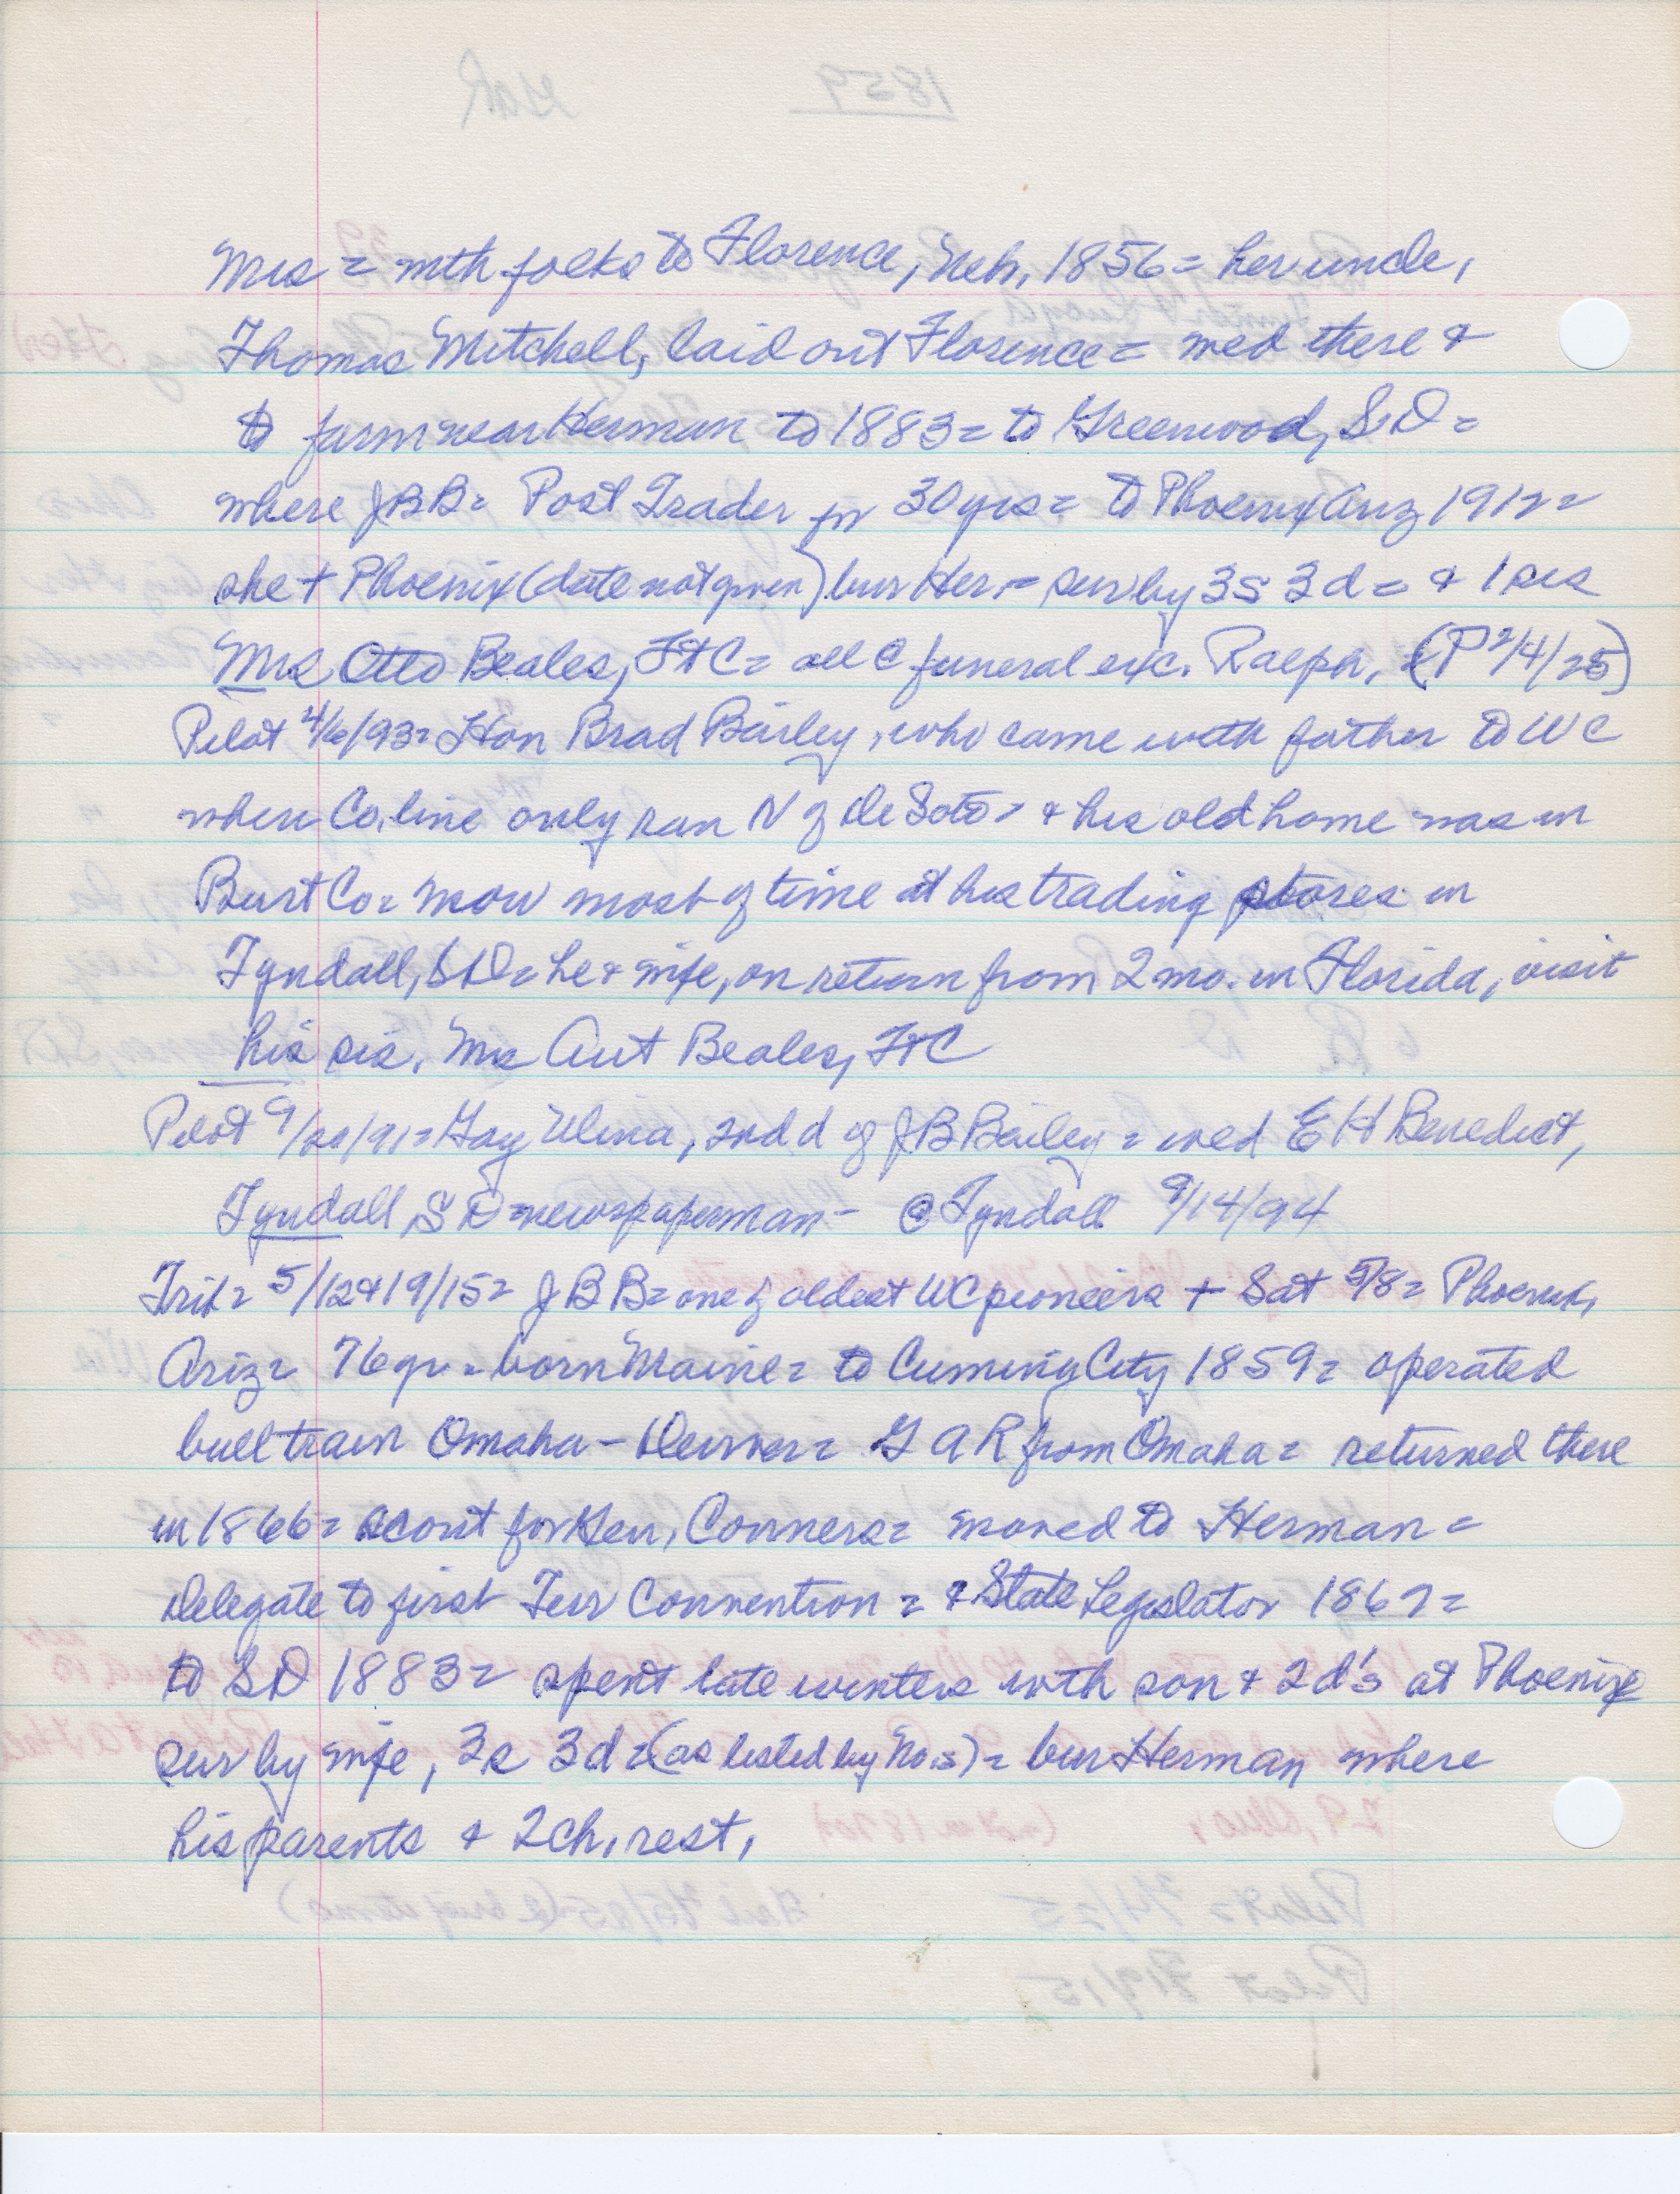 Mrs = with folks to Florence, Neb, 1856 = her uncle,
Thomas Mitchell, laid out Florence = wed there &
to farm near Herman to 1883 = to Greenwood, S D =
where J B B = Post Trader for 30 yrs = to Phoenix Ariz 1912 =
she + Phoenix (date not given) bur Her. = sur by 3s 3d = & 1 sis
Mrs Otto Beales, Ft C = all @ funeral exc. Ralph, (P 2/4/25)
Pilot 4/6/93 = Hon Brad Bailey, who came with father to W C
when Co. line only ran N of De Soto = & his old home was in
Burt Co = now most of time at his trading stores in
Tyndall, S D = he & wife, on return from 2 mo. in Florida, visit
his sis, Mrs Aut Beales, Ft C
Pilot 9/20/91 = Gay Ulina, 2nd d of J B Bailey = wed E H Benedict,
Tyndall, S D = newspaperman - @ Tyndall 9/14/94
Trib = 5/12 & 19/15 = J B B = one of oldest WC pioneers + Sat 5/8 = Phoenix,
Ariz = 76 yr = born Maine = to Cuming City 1859 = operated
bull train Omaha - Denver = G A R from Omaha = returned there
in 1866 = scout for Gen, Conners = moved to Herman =
Delegate to first Terr Convention = & State Legislator 1867 =
to S D 1883 = spent late winters with son & 2 d's at Phoenix
sur by wife, 3s 3d = (as listed by No.s) = bur Herman where
his parents & 2 ch, rest,